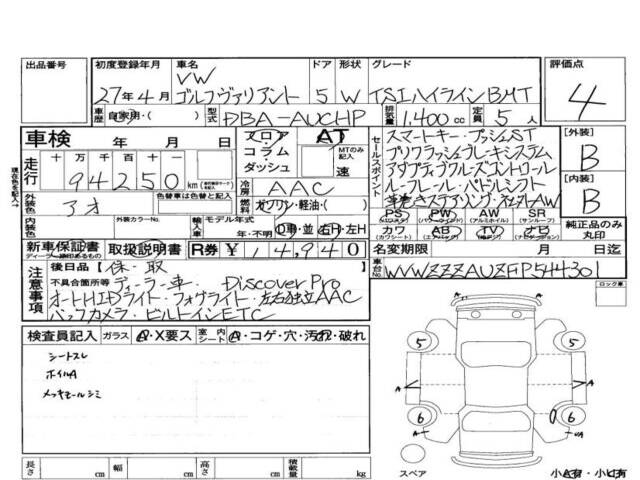 出品番号 初度登録年月 車名 ドア 形状 グレード 評価点
VW
27年4月 ゴルフヴァリアント 5 W TSIハイラインBMT 4
車歴 自家用・( ) 型式 DBA-AUCHP 排気量 1,400cc 定員 5人
車検 年 月 日
フロア コラム ダッシュ AT MTのみ記入 速
走行 十万 千 百 十 一
94250 km
冷房 AAC
燃料 ガソリン・軽油・( )
外装色 アオ 色替車は色替と記入
内装色 外装カラーNo. モデル年式 年・不明 D車・並 右H・左H
セールスポイント
スマートキー・プッシュST
プリクラッシュブレーキシステム
アダプティブクルーズコントロール
ルーフレール・パドルシフト
革巻きステアリング・社外AW
PS PW AW SR
(パワステ) (アルミホイル) (サンルーフ)
カワ AB TV ナビ
(カワシート) (エアバッグ)
[外装] B
[内装] B
純正品のみ丸印
新車保証書 取扱説明書 R券 ¥ 14,940
名変期限 月 日
車台No. WVWZZZAUZFP544301
注意事項
後日品 [保・取 ]
不具合箇所等 ディーラー車・Discover Pro
オートHIDライト・フォグライト・左右独立AAC
バックカメラ・ビルトインETC
ロック車
検査員記入 ガラス A・X要ス 室内シート A・コゲ・穴・汚れ・破れ
シートスレ
ホイルA
メッキモールシミ
5 5
A A
6 6
A A
スペア 小A有・小U有
長さ cm 幅 cm 高さ cm 積載量 kg